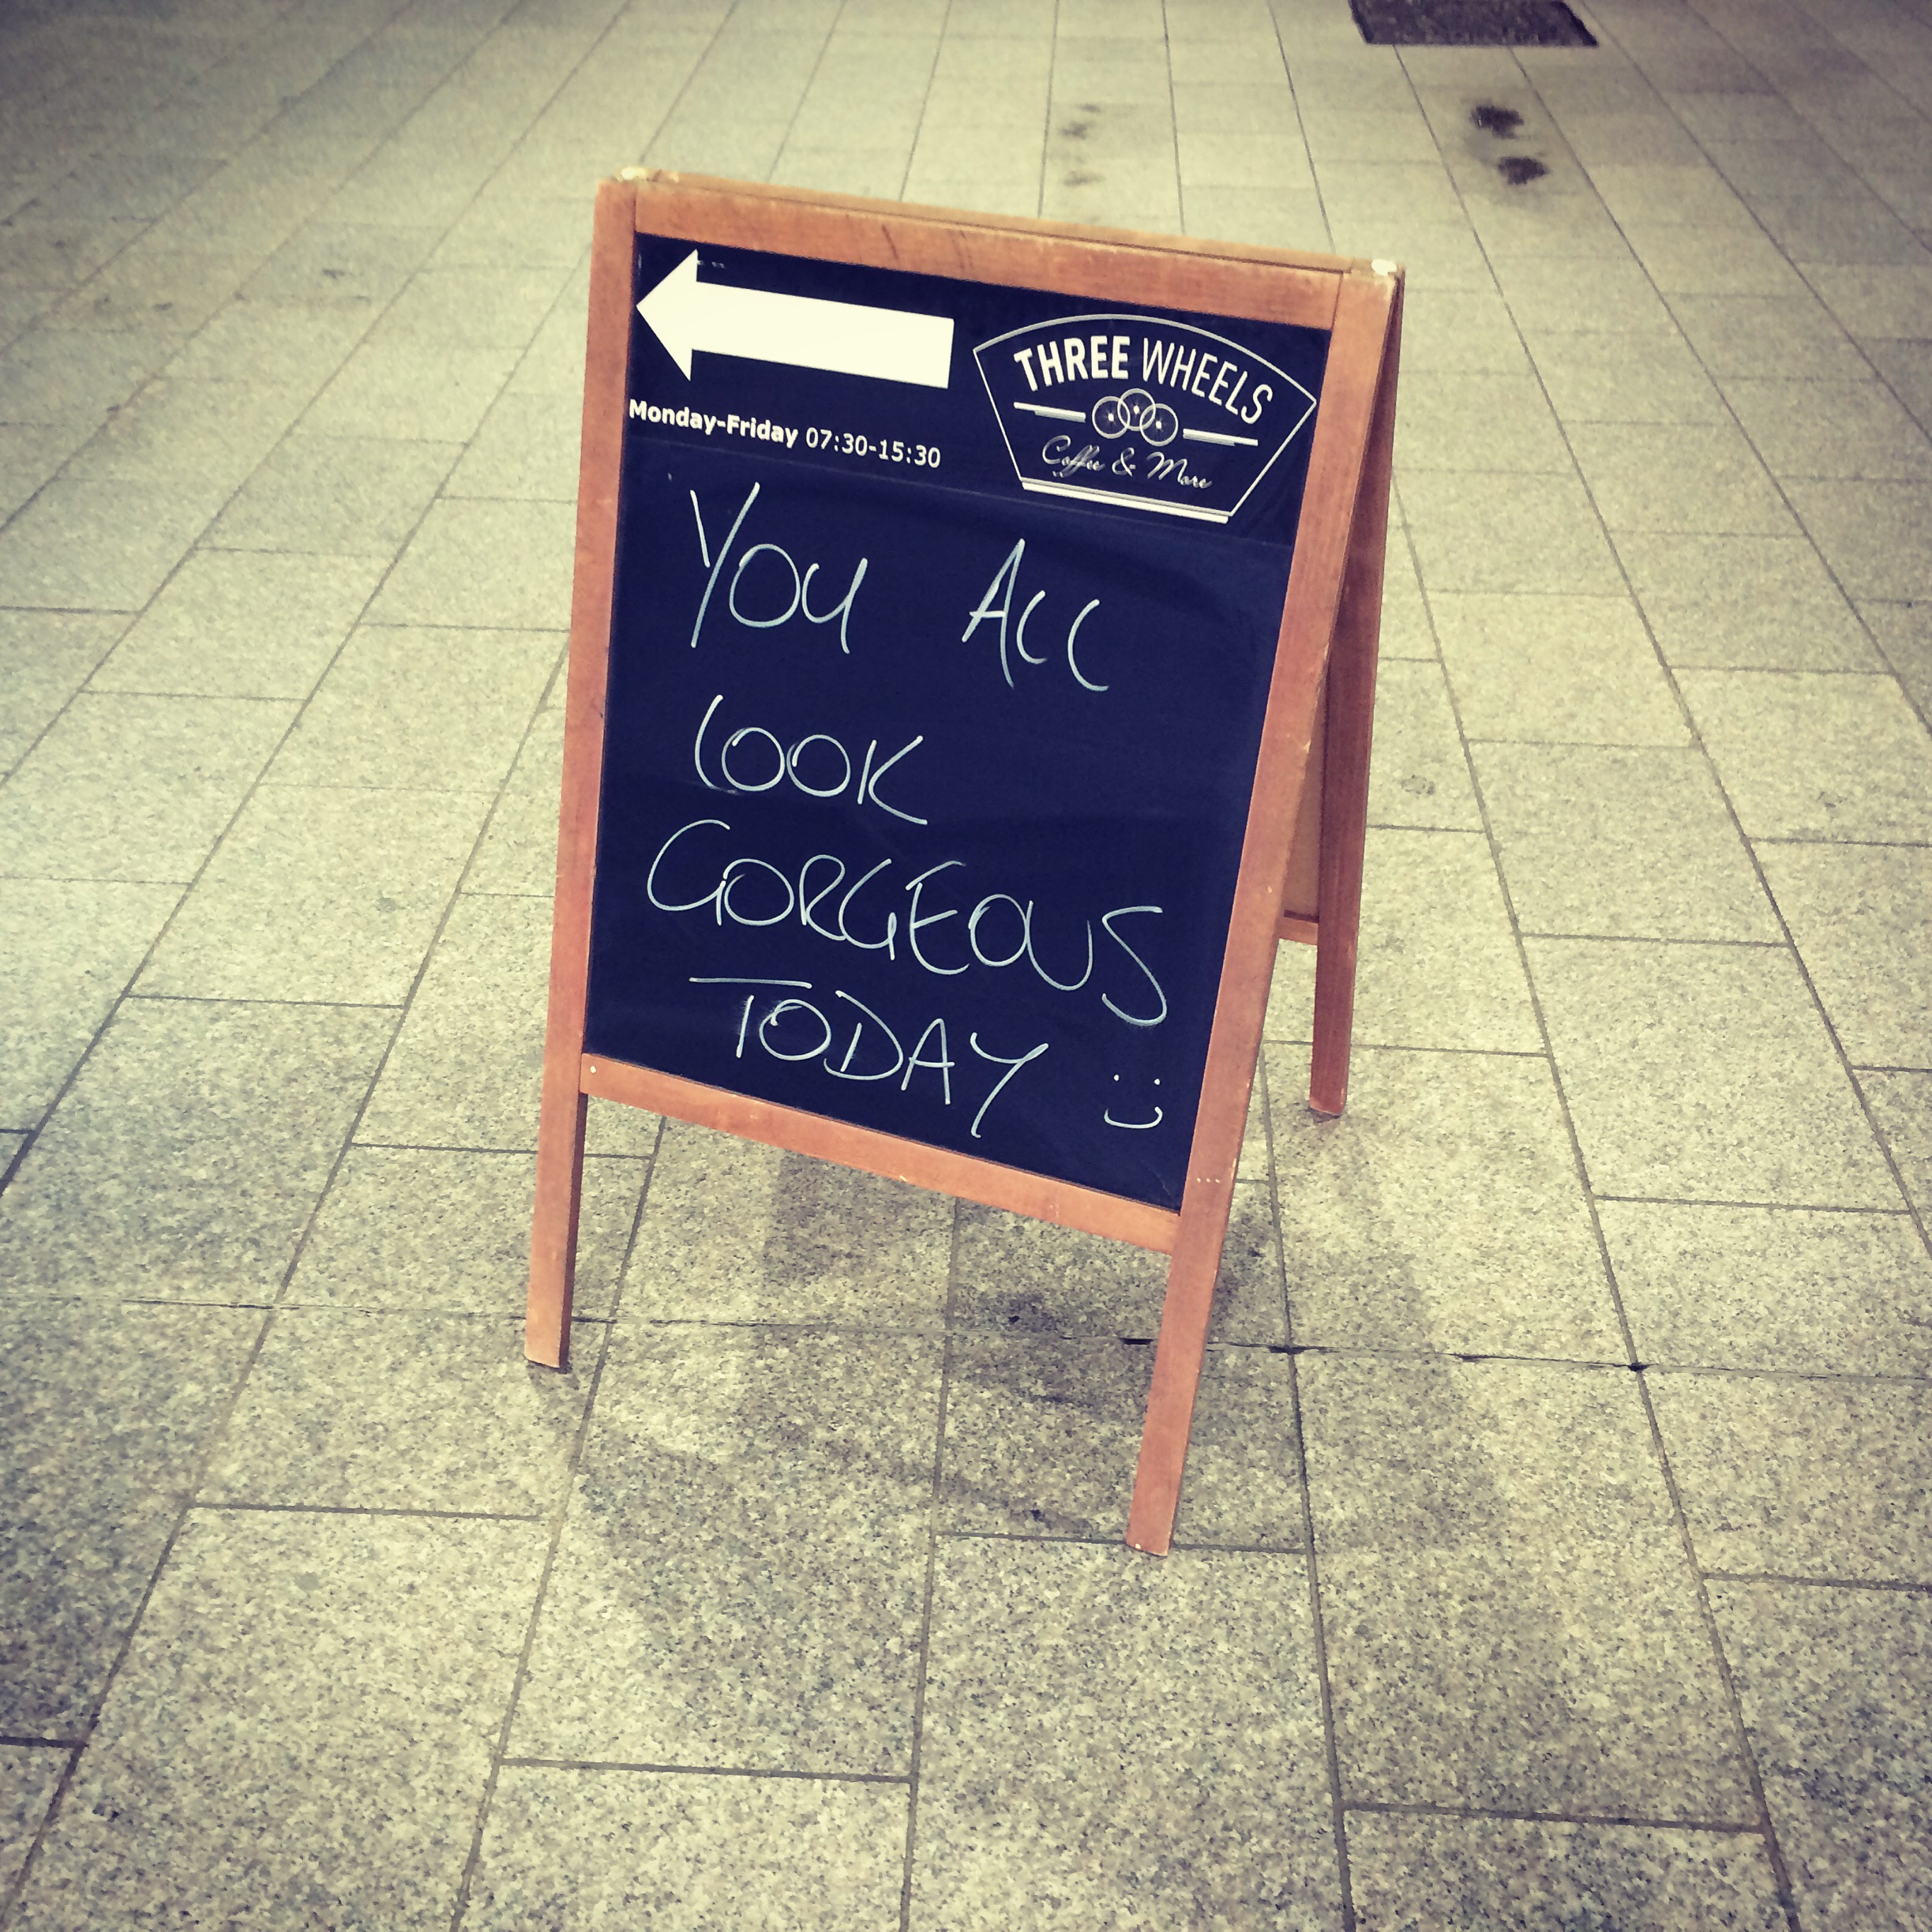 THREE WHEELS
Coffee & More
Monday-Friday 07:30-15:30
YOU ALL
LOOK
GORGEOUS
TODAY :)